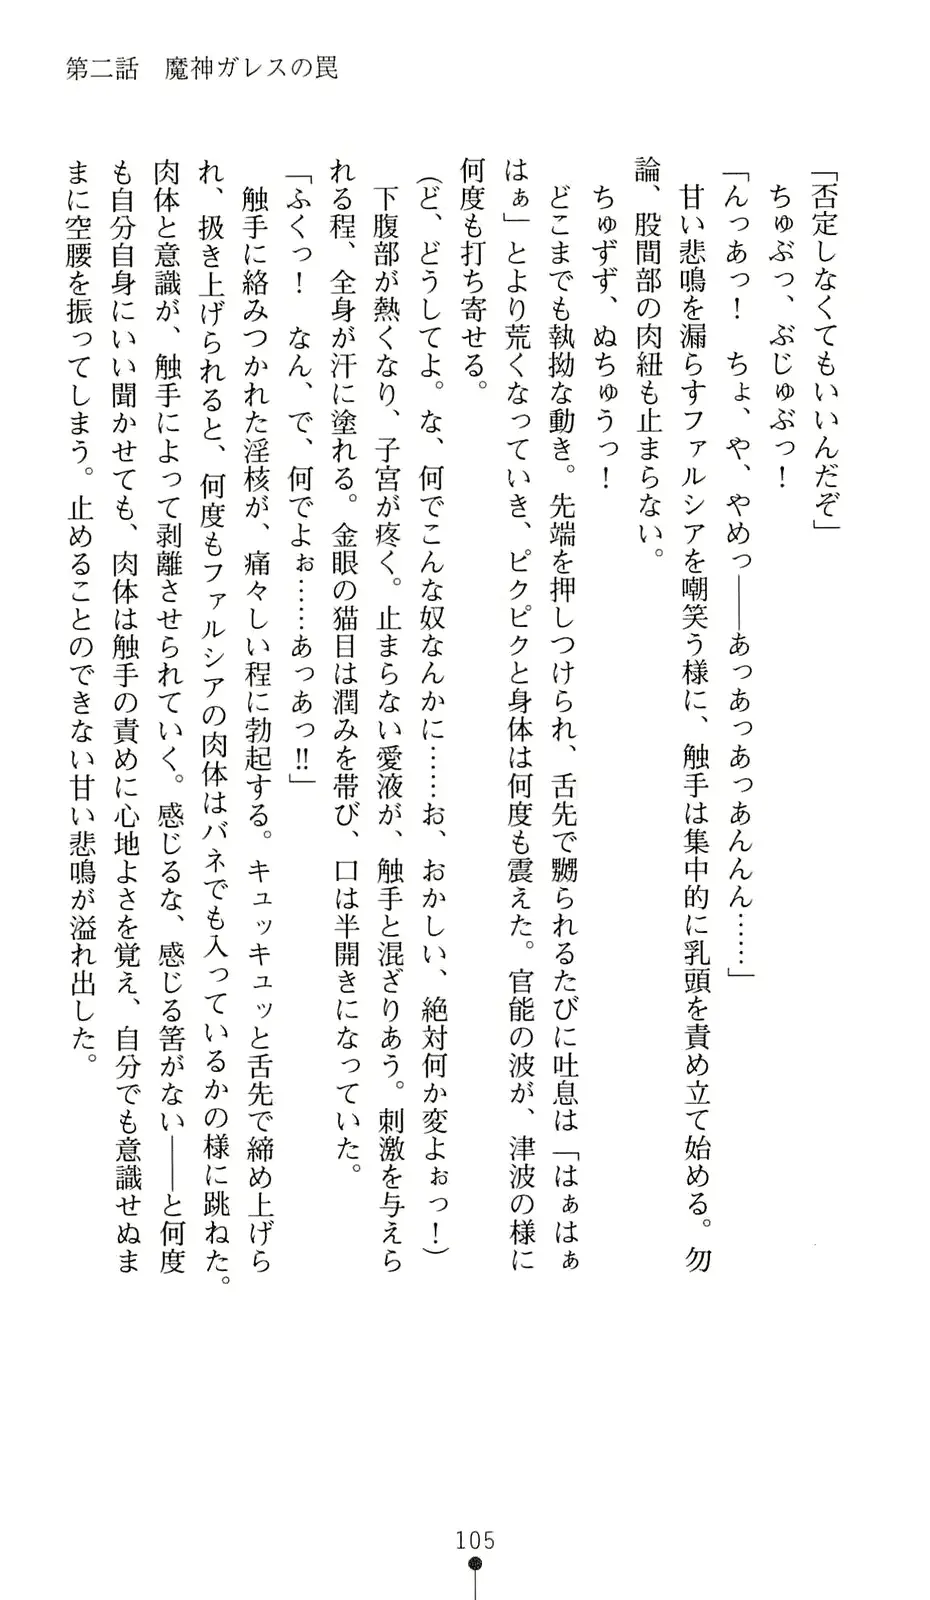 第二話　魔神ガレスの罠
「否定しなくてもいいんだぞ」
ちゅぶっ、ぶじゅぶっ！
「んっあっ！　ちょ、や、やめっ――あっあっあっあんんん……」
甘い悲鳴を漏らすファルシアを嘲笑う様に、触手は集中的に乳頭を責め立て始める。勿
論、股間部の肉紐も止まらない。
ちゅずず、ぬちゅうっ！
どこまでも執拗な動き。先端を押しつけられ、舌先で嬲られるたびに吐息は「はぁはぁ
はぁ」とより荒くなっていき、ピクピクと身体は何度も震えた。官能の波が、津波の様に
何度も打ち寄せる。
（ど、どうしてよ。な、何でこんな奴なんかに……お、おかしい、絶対何か変よぉっ！）
下腹部が熱くなり、子宮が疼く。止まらない愛液が、触手と混ざりあう。刺激を与えら
れる程、全身が汗に塗れる。金眼の猫目は潤みを帯び、口は半開きになっていた。
「ふくっ！　なん、で、何でよぉ……あっあっ!!」
触手に絡みつかれた淫核が、痛々しい程に勃起する。キュッキュッと舌先で締め上げら
れ、扱き上げられると、何度もファルシアの肉体はバネでも入っているかの様に跳ねた。
肉体と意識が、触手によって剥離させられていく。感じるな、感じる筈がない――と何度
も自分自身にいい聞かせても、肉体は触手の責めに心地よさを覚え、自分でも意識せぬま
まに空腰を振ってしまう。止めることのできない甘い悲鳴が溢れ出した。
105